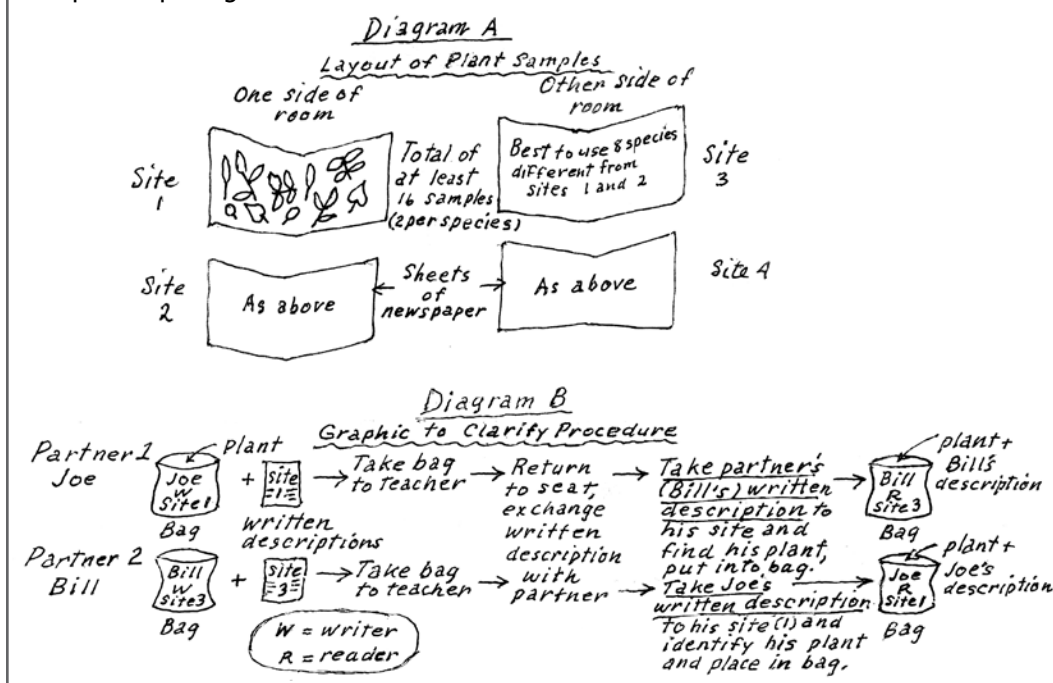 Diagram A
Layout of Plant Samples
One side of
room
Other side of
room
Site
1
Total of
at least
16 samples
(2 per species)
Best to use 8 species
different from
sites 1 and 2
Site
3
Site
2
As above
Sheets
of
newspaper
As above
Site 4
Diagram B
Graphic to Clarify Procedure
Partner 1
Joe
plant
Joe
W
Site 1
Bag
+
site
1
written
descriptions
Take bag
to teacher
Return
to seat,
exchange
written
description
with
partner
Take partner's
(Bill's) written
description to
his site and
find his plant,
put into bag.
Bill
R
site 3
Bag
plant +
Bill's
description
Partner 2
Bill
Bill
W
Site 3
Bag
+
site
3
Take bag
to teacher
Take Joe's
written description
to his site (1) and
identify his plant
and place in bag.
Joe
R
Site 1
Bag
plant +
Joe's
description
W = writer
R = reader